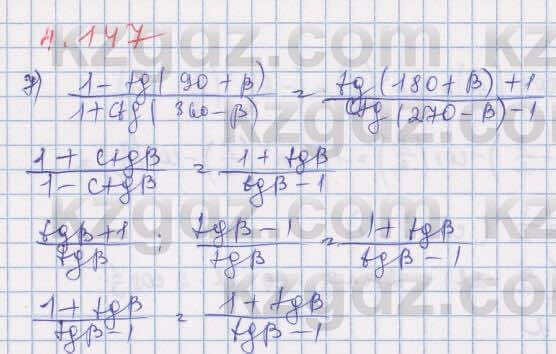 4.147
7) (1 - tg(90 + β)) / (1 + ctg(360 - β)) = (tg(180 + β) + 1) / (ctg(270 - β) - 1)
(1 + ctgβ) / (1 - ctgβ) = (1 + tgβ) / (tgβ - 1)
(tgβ + 1) / tgβ : (tgβ - 1) / tgβ = (1 + tgβ) / (tgβ - 1)
(1 + tgβ) / (tgβ - 1) = (1 + tgβ) / (tgβ - 1)
kzgdz.com